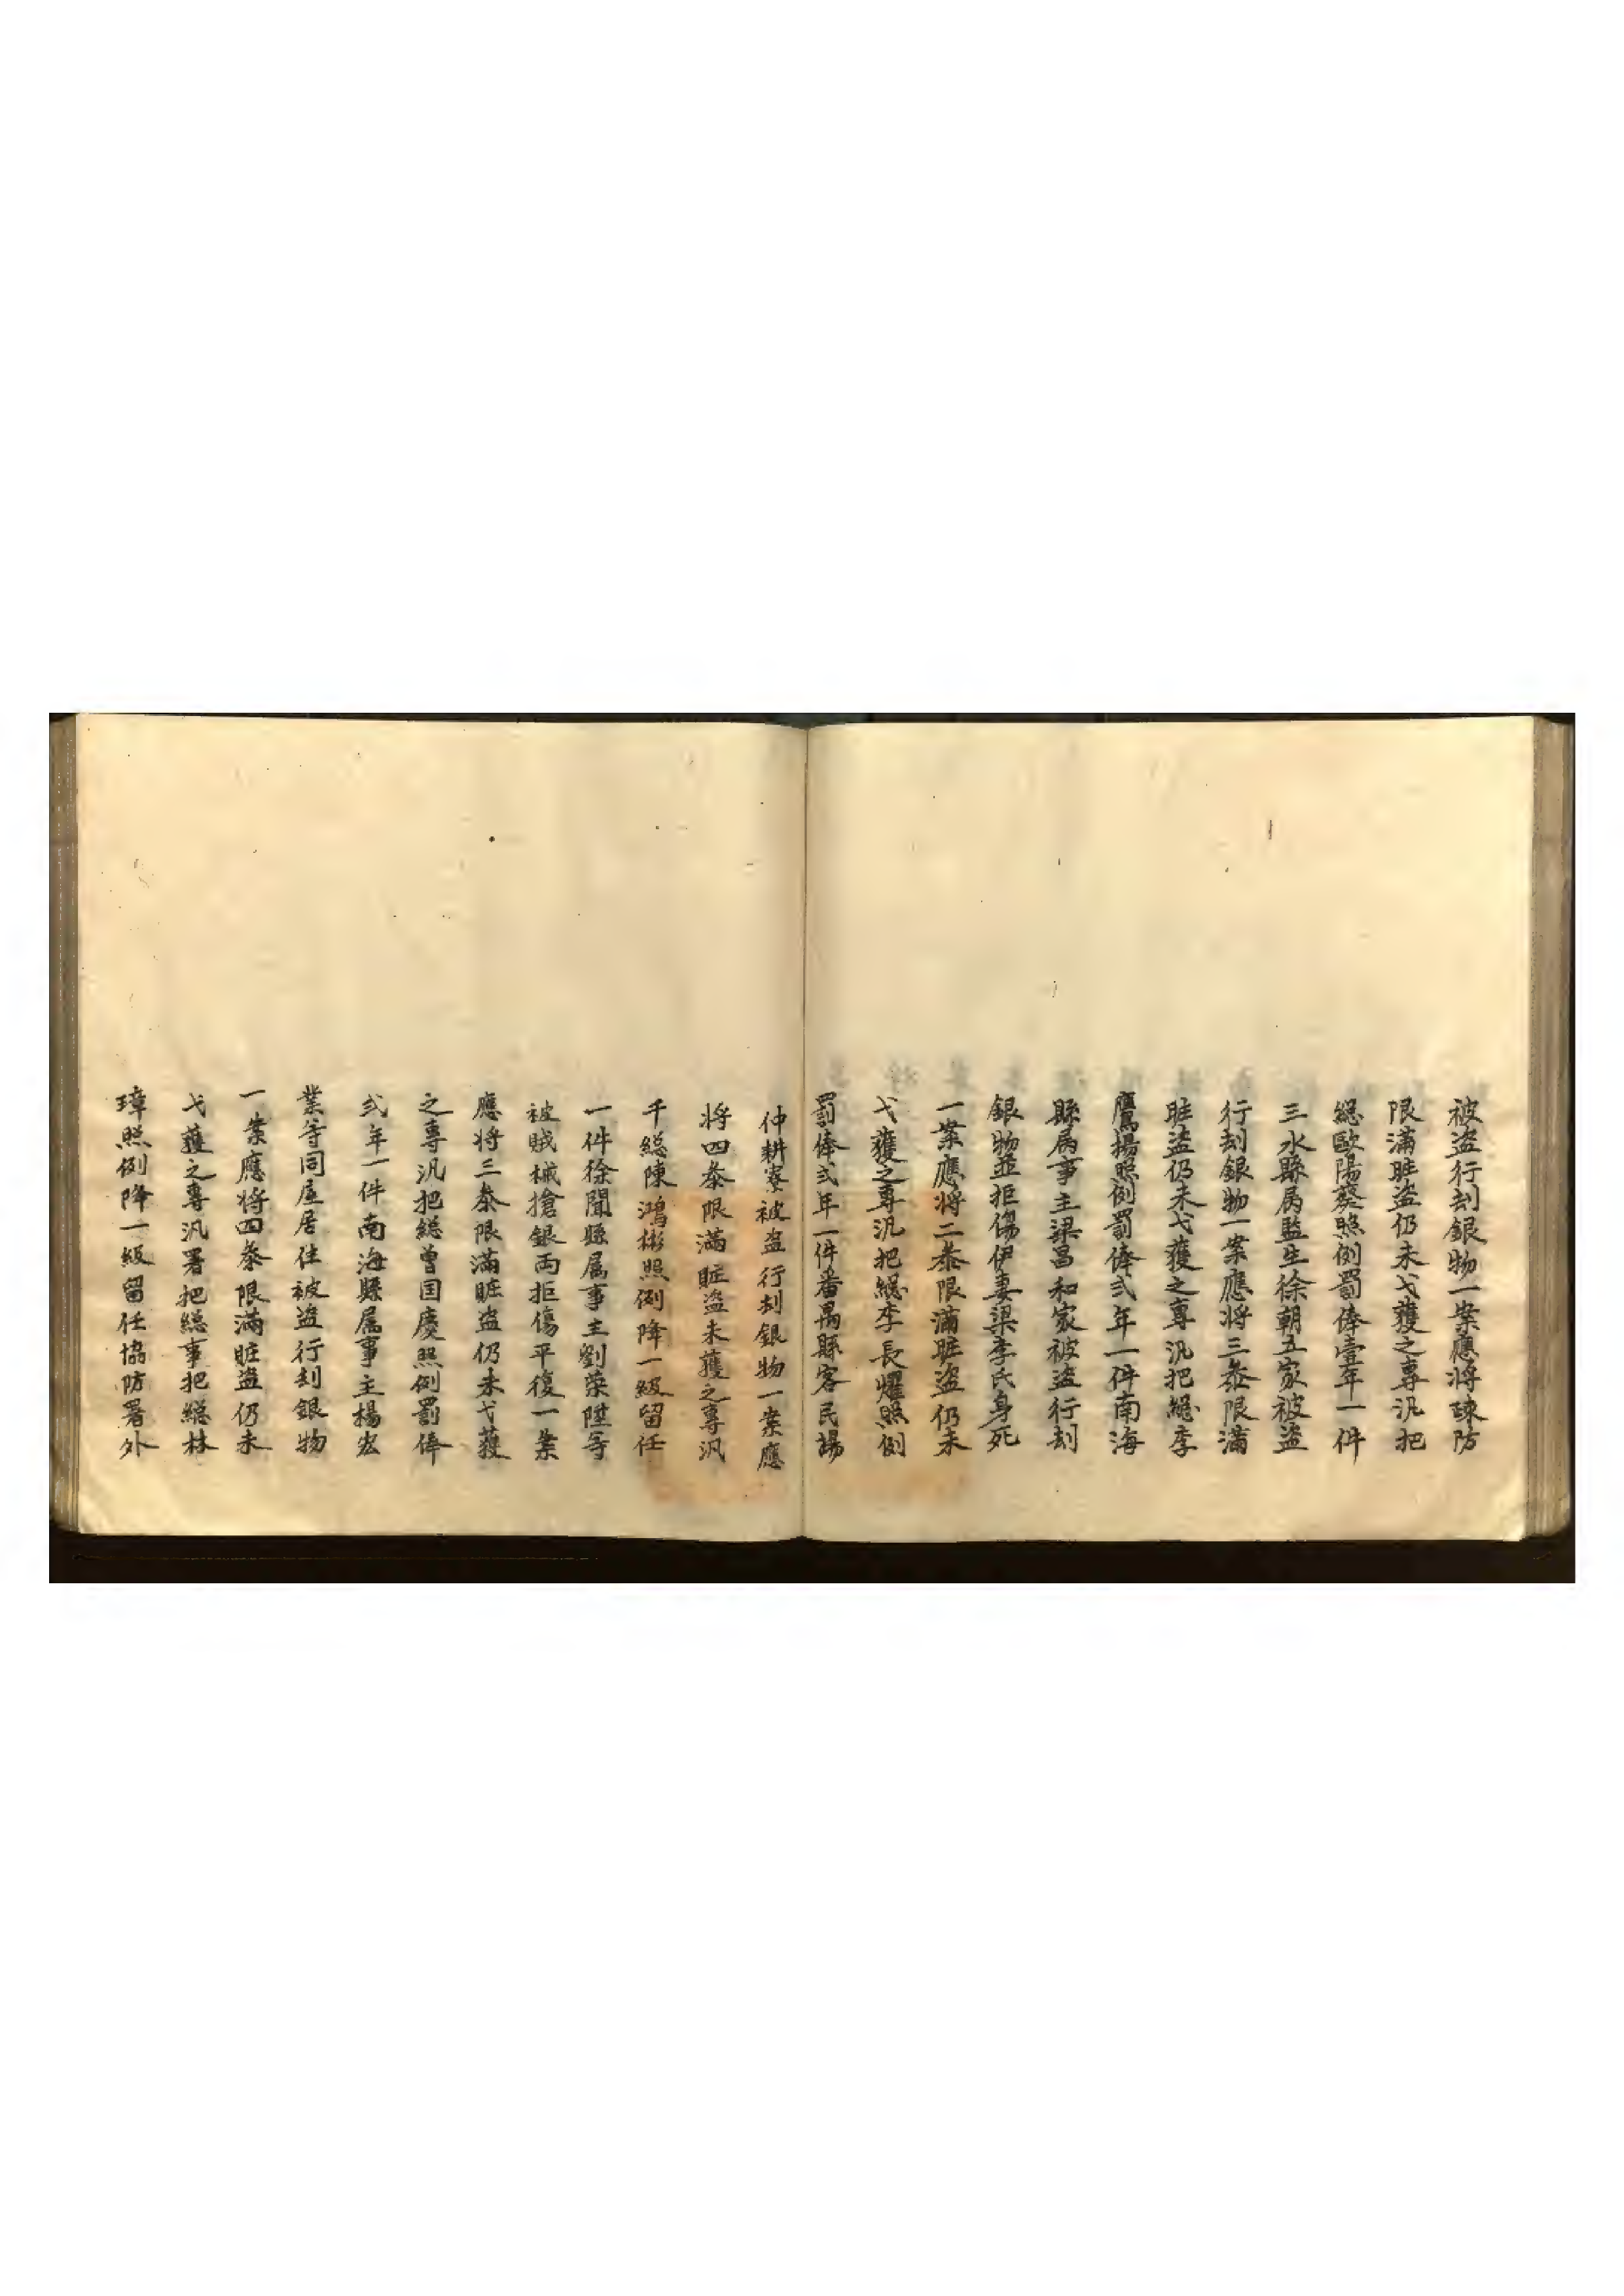 被盗行刦銀物一案應将疎防
限滿賍盗仍未弋獲之專汛把
總歐陽葵照例罰俸壹年一件
三水縣属監生徐朝五家被盗
行刦銀物一案應将三叅限滿
賍盗仍未弋獲之專汛把總李
鷹揚照例罰俸弍年一件南海
縣属事主梁昌和家被盗行刦
銀物並拒傷伊妻梁李氏身死
一案應将二叅限滿賍盗仍未
弋獲之專汛把總李長燿照例
罰俸弍年一件番禺縣客民
仲耕寮被盗行刦銀物一案應
将四叅限滿賍盗未獲之專汛
千総陳鴻彬照例降一級留任
一件徐聞縣属事主劉荣陞等
被賊械搶銀両拒傷平復一案
應将三叅限滿賍盗仍未弋獲
之專汛把総曾国慶照例罰俸
弍年一件南海縣属事主楊宏
業等同屋居住被盗行刦銀物
一案應将四叅限滿賍盗仍未
弋獲之專汛署把総事把総林
璋照例降一級留任協防署外